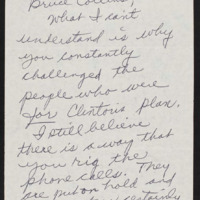 Bruce Collins,
What I can't
understand is why
you constantly
challenged the
people who were
for Clintons plan.
I still believe
there is a way that
you rig the
phone calls. They
are put on hold and
certainly